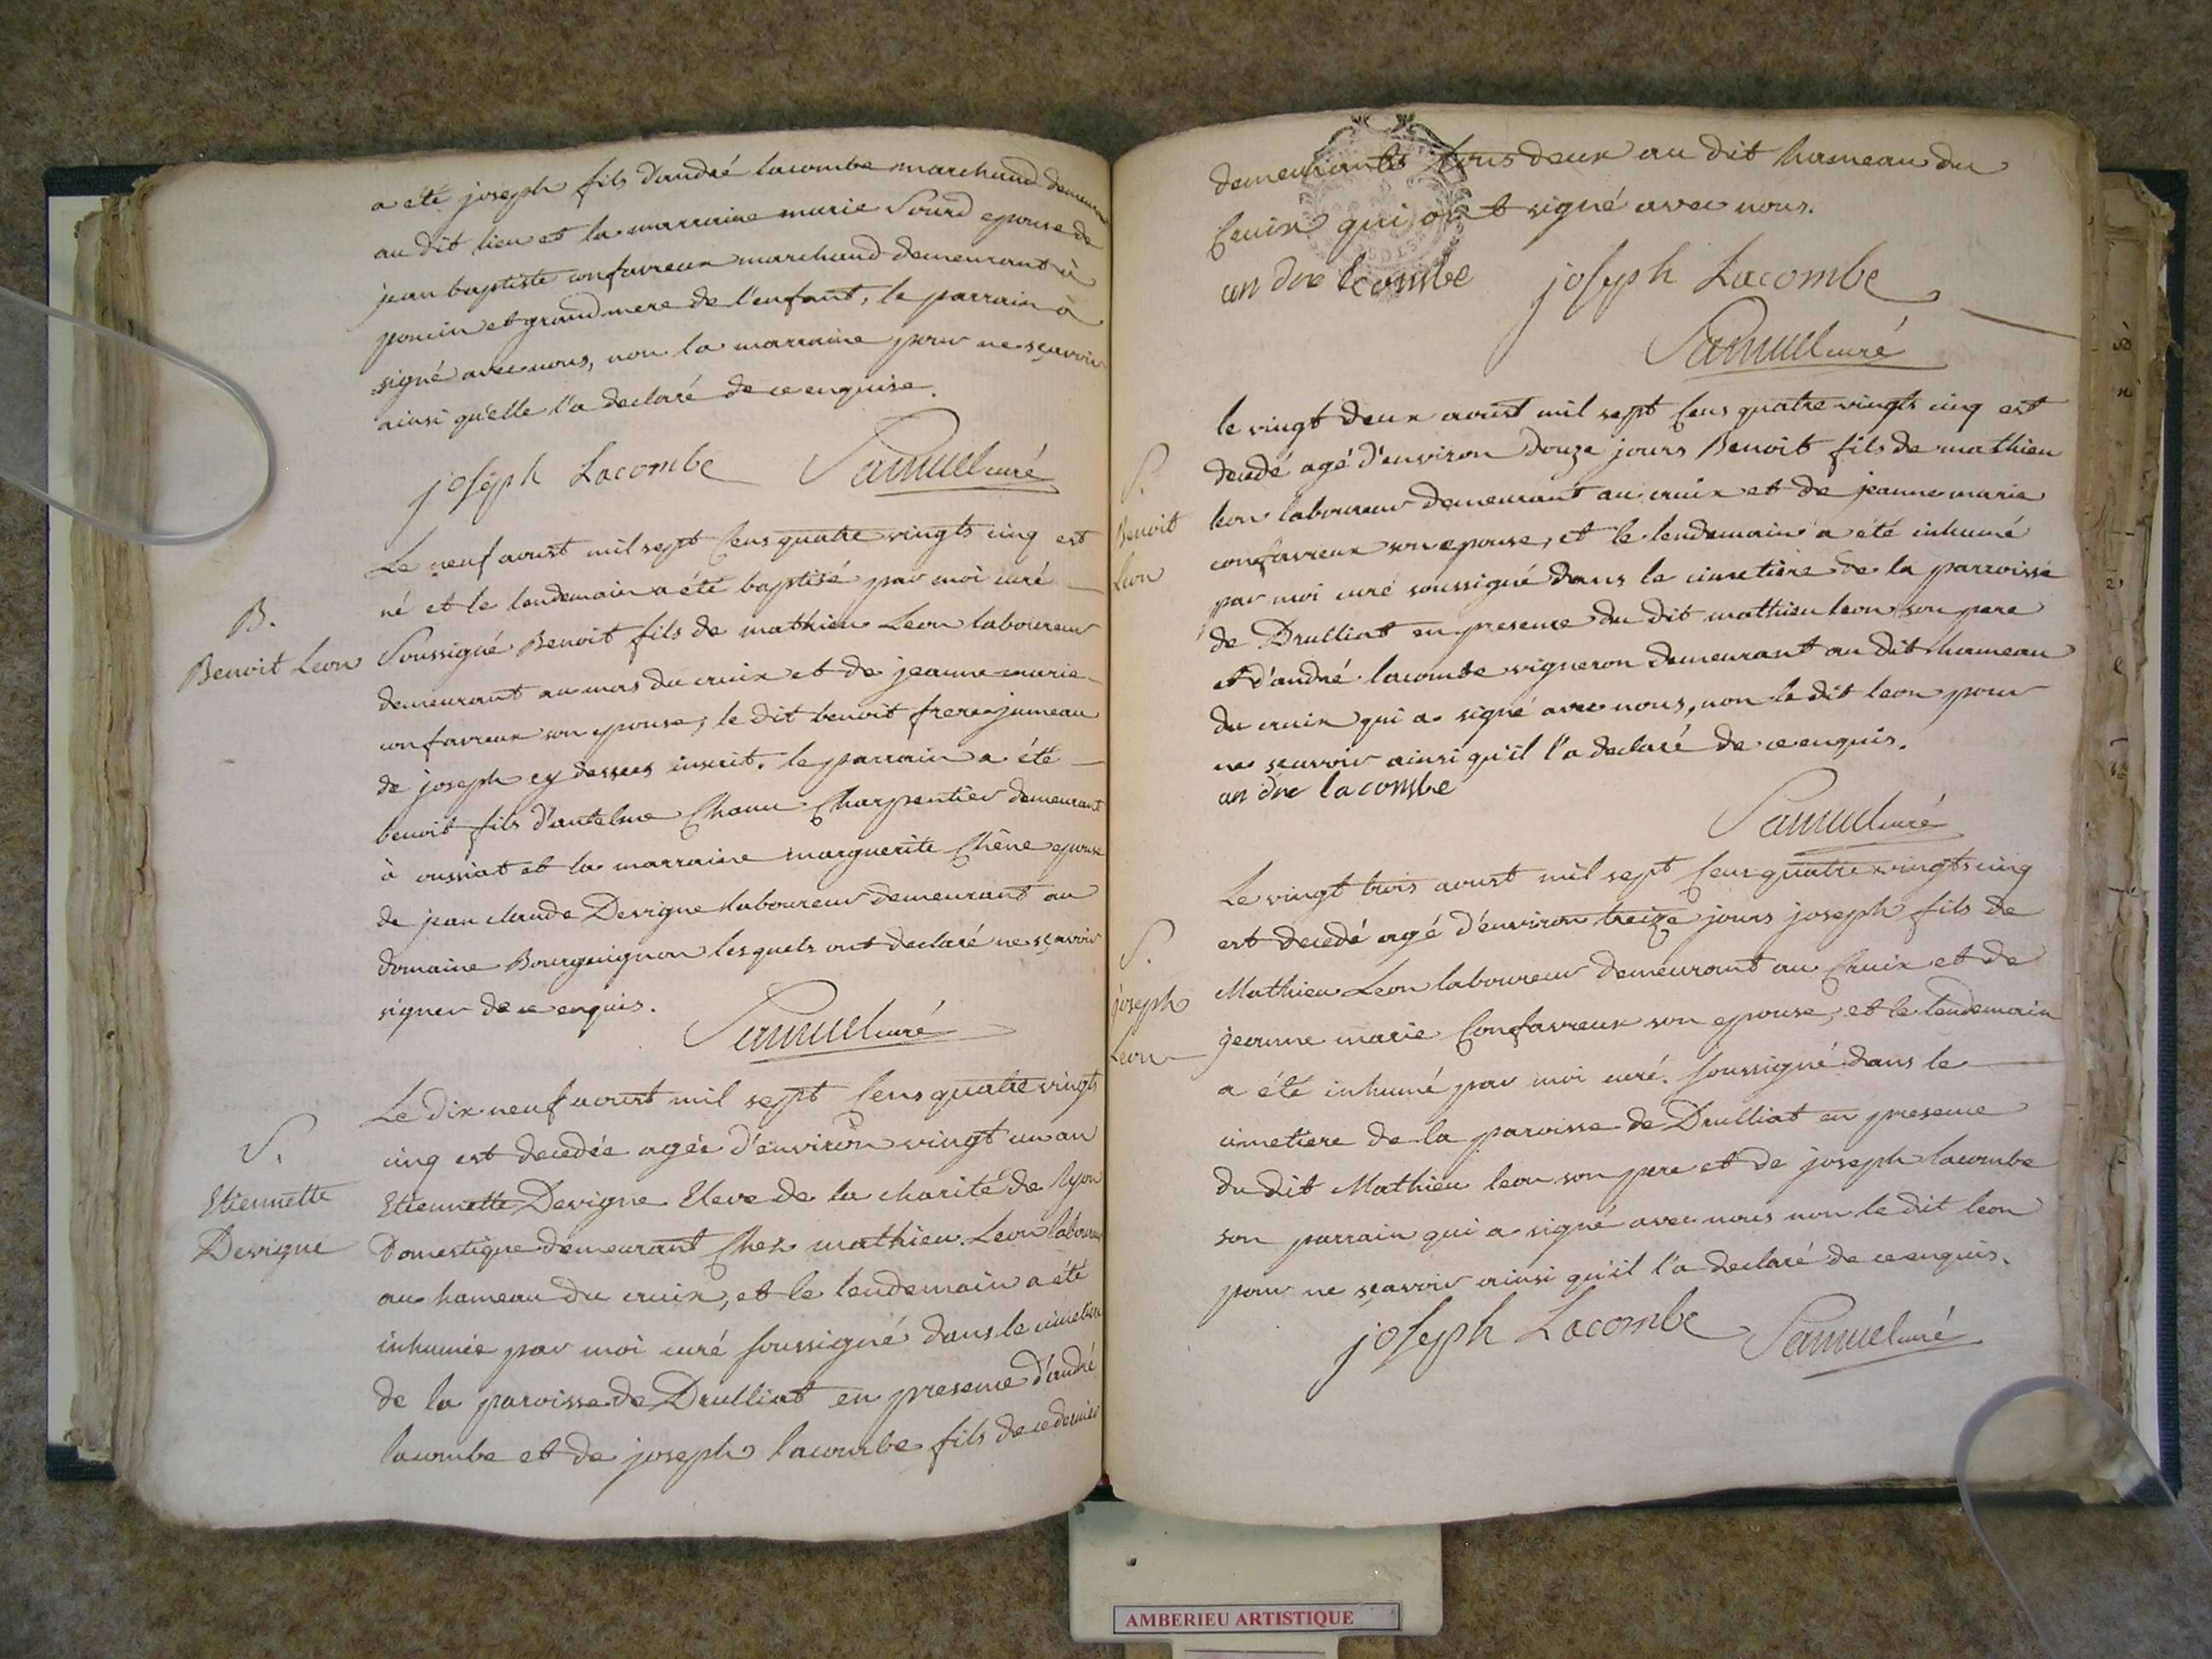 a été joseph fils d'andré lacombe marchand demeurant
au dit lieu et la marraine marie Sourd epouse de
jean baptiste confavreux marchand demeurant à
poncin et grand mere de l'enfant, le parrain à
signé avec nous, non la marraine pour ne sçavoir
ainsi qu'elle l'a declaré de ce enquise.
joseph Lacombe Samuel curé
B.
Benoit Leon
Le neuf aoust mil sept Cens quatre vingts cinq est
né et le lendemain a été baptisé par moi curé
Soussigné Benoit fils de mathieu Leon laboureur
demeurant au mas du cruix et de jeanne marie
confavreux son epouse, le dit benoit frere jumeau
de joseph cy dessus inscrit. le parrain a été
benoit fils d'antelme Charpentier demeurant
à oussiat et la marraine marguerite Chêne epouse
de jean claude Devigne laboureur demeurant au
domaine Bourguignon lesquels ont declaré ne sçavoir
signer de ce enquis.
Samuel curé
S.
Etiennette
Devigne
Le dix neuf aoust mil sept Cens quatre vingts
cinq est decedée agée d'environ vingt un an
Etiennette Devigne Eleve de la charité de lyon
Domestique demeurant Chez mathieu Leon laboureur
au hameau du cruix, et le lendemain a été
inhumée par moi curé soussigné dans le cimetiere
de la paroisse de Druilliat en presence d'andré
lacombe et de joseph lacombe fils de ce dernier
demeurants tous deux au dit hameau du
Cruix qui ont signé avec nous.
an dre lacombe joseph Lacombe
Samuel curé
S.
Benoit
Leon
le vingt deux aoust mil sept Cens quatre vingts cinq est
decedé agé d'environ douze jours Benoit fils de mathieu
leon laboureur demeurant au cruix et de jeanne marie
confavreux son epouse, et le lendemain a été inhumé
par moi curé soussigné dans le cimetiere de la parroisse
de Druilliat en presence du dit mathieu leon son pere
et d'andré lacombe vigneron demeurant au dit hameau
du cruix qui a signé avec nous, non le dit leon pour
ne sçavoir ainsi qu'il l'a declaré de ce enquis.
an dre lacombe
Samuel curé
S.
joseph
Leon
Le vingt trois aoust mil sept Cens quatre vingts cinq
est decedé agé d'environ treize jours joseph fils de
Mathieu Leon laboureur demeurant au Cruix et de
jeanne marie Confavreux son epouse, et le lendemain
a été inhumé par moi curé soussigné dans le
cimetiere de la paroisse de Druilliat en presence
du dit Mathieu leon son pere et de joseph lacombe
son parrain qui a signé avec nous non le dit leon
pour ne sçavoir ainsi qu'il l'a declaré de ce enquis.
joseph Lacombe Samuel curé
AMBERIEU ARTISTIQUE